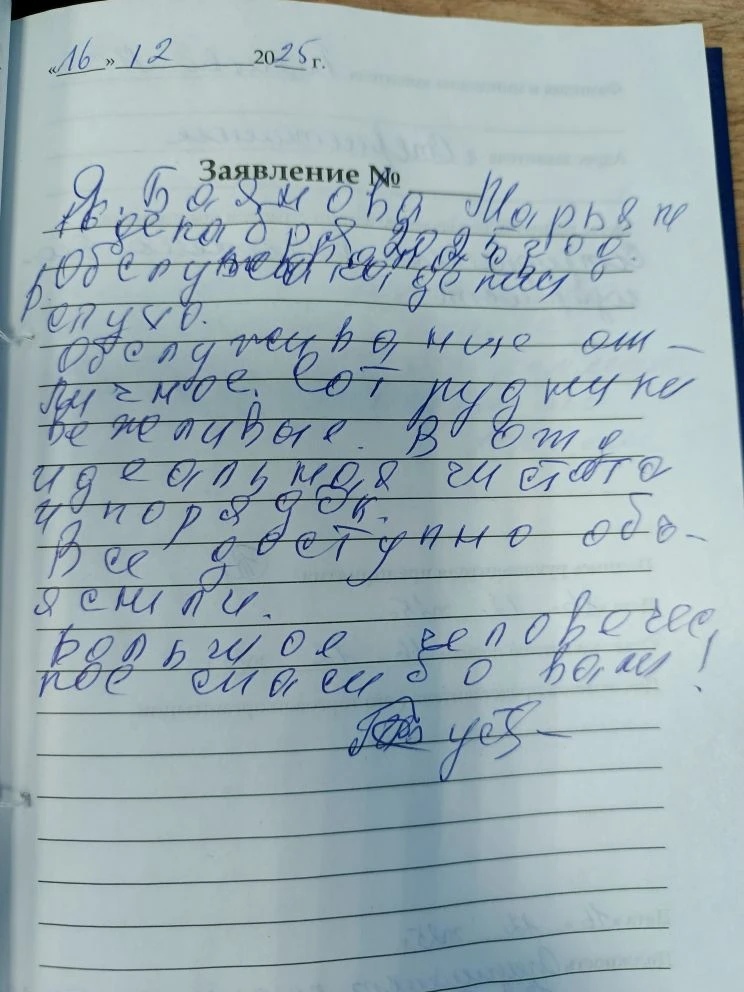 «16» 12 2025 г.
Заявление №
Я. Баянова Марьям
16 декабря 2025 год.
Обслуживалась
р. слуха.
Обслуживание от-
личное. Сотрудники
вежливые. В отд
идеальная чистота
и порядок.
Все доступно объ-
яснили.
Большое человечес
кое спасибо вам!